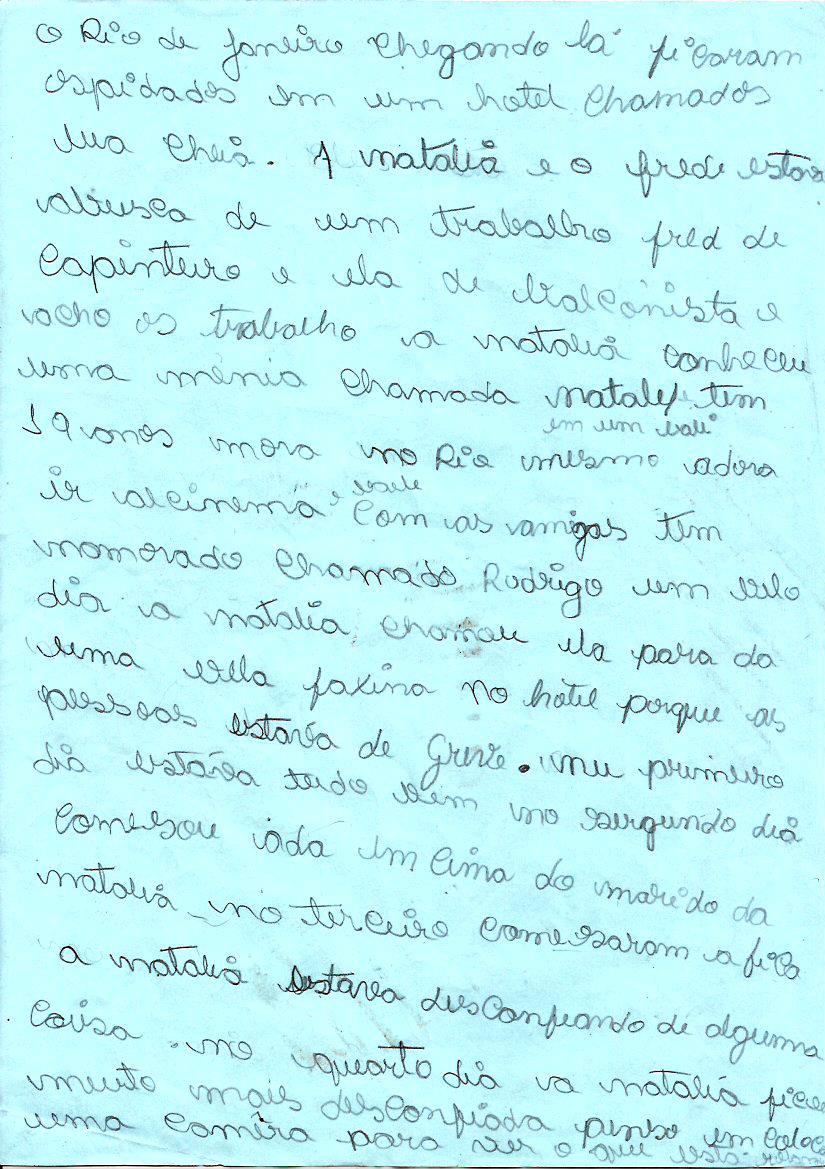 o Rio de janeiro chegando lá ficaram
ospidados em um hotel chamados
lua cheia. A natalia e o frede estava
abusca de um trabalho fred de
capinteiro e ela de balconista e
acho os trabalho a natalia conheceu
uma menia chamada nataly tem
19 anos mora no Rio mesmo adora
em um baile
ir alcinema e baile com as amigas tem
namorado chamado Rodrigo um belo
dia a natalia chamou ela para da
uma bella faxina no hotel porque as
pessoas estava de Greve. nu primeiro
dia estava tudo bem no segundo dia
comesou ada em cima do marido da
natalia no terceiro comesaram a fica
a natalia estava desconfiando de alguma
coisa. no quarto dia a natalia ficou
muito mais desconfiada penso em coloca
uma camira para ver o que esta